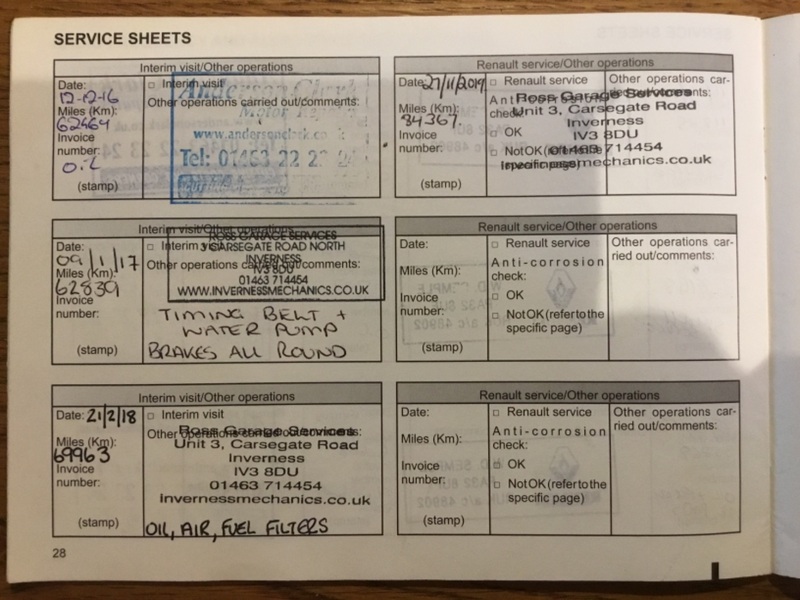 SERVICE SHEETS
Interim visit/Other operations
Date:
12-12-16
Miles (Km):
62464
Invoice
number:
(stamp)
□ Interim visit
Other operations carried out/comments:
Anderson Clark
Motor
www.andersonclark.co
Tel: 01463 22 2 24
Renault service/Other operations
Date: 27/11/2019
Miles (Km):
84367.
Invoice
number:
(stamp)
□ Renault service
Anti-corrosion
check:
□ OK
□ Not OK (refer to the
specific page)
Other operations car-
ried out/comments:
Ross Garage Services
Unit 3, Carsegate Road
Inverness
IV3 8DU
01463 714454
invernessmechanics.co.uk
Interim visit/Other operations
Date:
09/1/17
Miles (Km):
62839
Invoice
number:
(stamp)
□ Interim visit
Other operations carried out/comments:
ROSS GARAGE SERVICES
3 CARSEGATE ROAD NORTH
INVERNESS
IV3 8DU
01463 714454
WWW.INVERNESSMECHANICS.CO.UK
TIMING BELT +
WATER PUMP
BRAKES ALL ROUND
Renault service/Other operations
Date:
Miles (Km):
Invoice
number:
(stamp)
□ Renault service
Anti-corrosion
check:
□ OK
□ Not OK (refer to the
specific page)
Other operations car-
ried out/comments:
Interim visit/Other operations
Date: 21/2/18
Miles (Km):
69963
Invoice
number:
(stamp)
□ Interim visit
Other operations carried out/comments:
Ross Garage Services
Unit 3, Carsegate Road
Inverness
IV3 8DU
01463 714454
invernessmechanics.co.uk
OIL, AIR, FUEL FILTERS
Renault service/Other operations
Date:
Miles (Km):
Invoice
number:
(stamp)
□ Renault service
Anti-corrosion
check:
□ OK
□ Not OK (refer to the
specific page)
Other operations car-
ried out/comments:
28